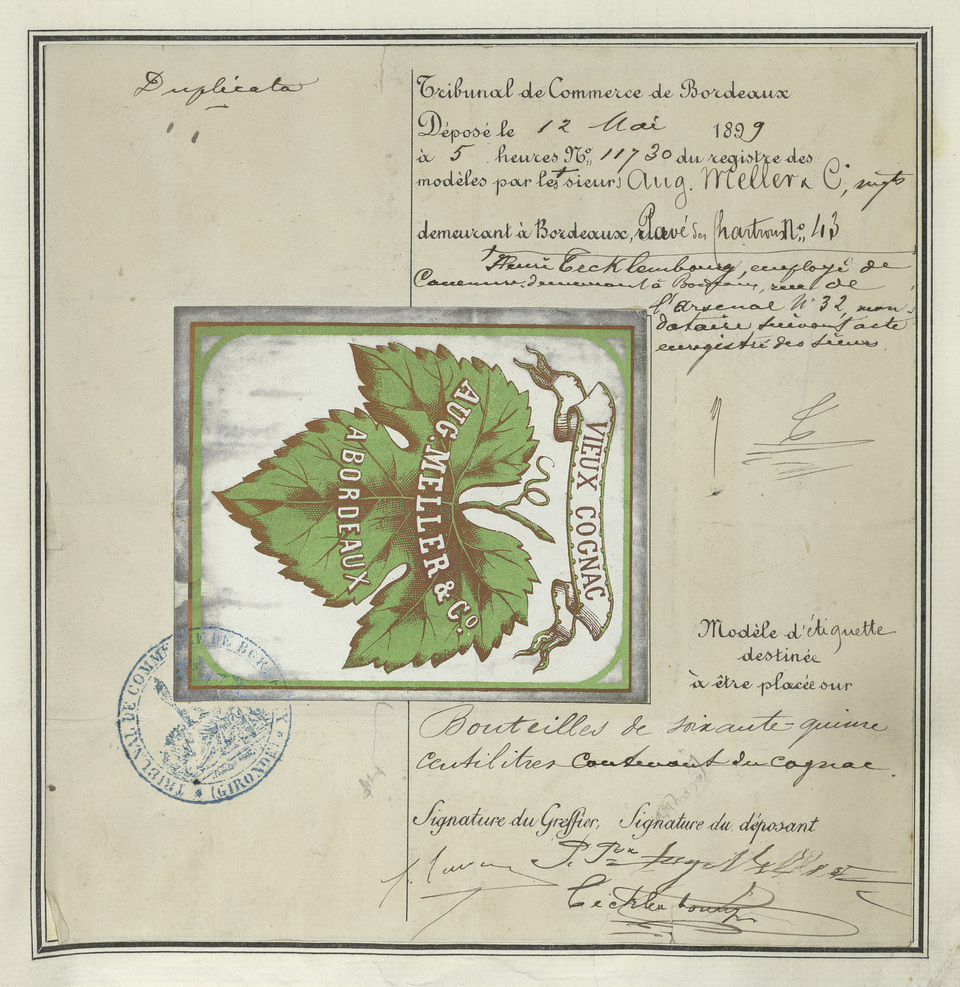 Duplicata
Tribunal de Commerce de Bordeaux
Déposé le 12 Mai 1899
à 5 heures Nº 11730 du registre des
modèles par le sieurs Aug. Meller & Cº, ngts
demeurant à Bordeaux, Pavé des Chartrons Nº 43
Henri Tecklembourg, employé de
Commerce, demeurant à Bordeaux, rue de
l'arsenal Nº 32, man-
dataire suivant acte
enregistré des sieurs
VIEUX COGNAC
AUG. MELLER & Cº.
A BORDEAUX
TRIBUNAL DE COMMERCE DE BORDEAUX
(GIRONDE)
Modèle d'étiquette
destinée
à être placée sur
Bouteilles de soixante-quinze
centilitres contenant du cognac.
Signature du Greffier, Signature du déposant
P. Pon Aug Meller & Cº
Tecklembourg